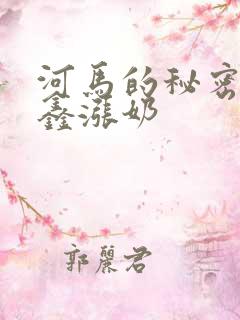 河马的秘密
鑫涨奶
郭麗君